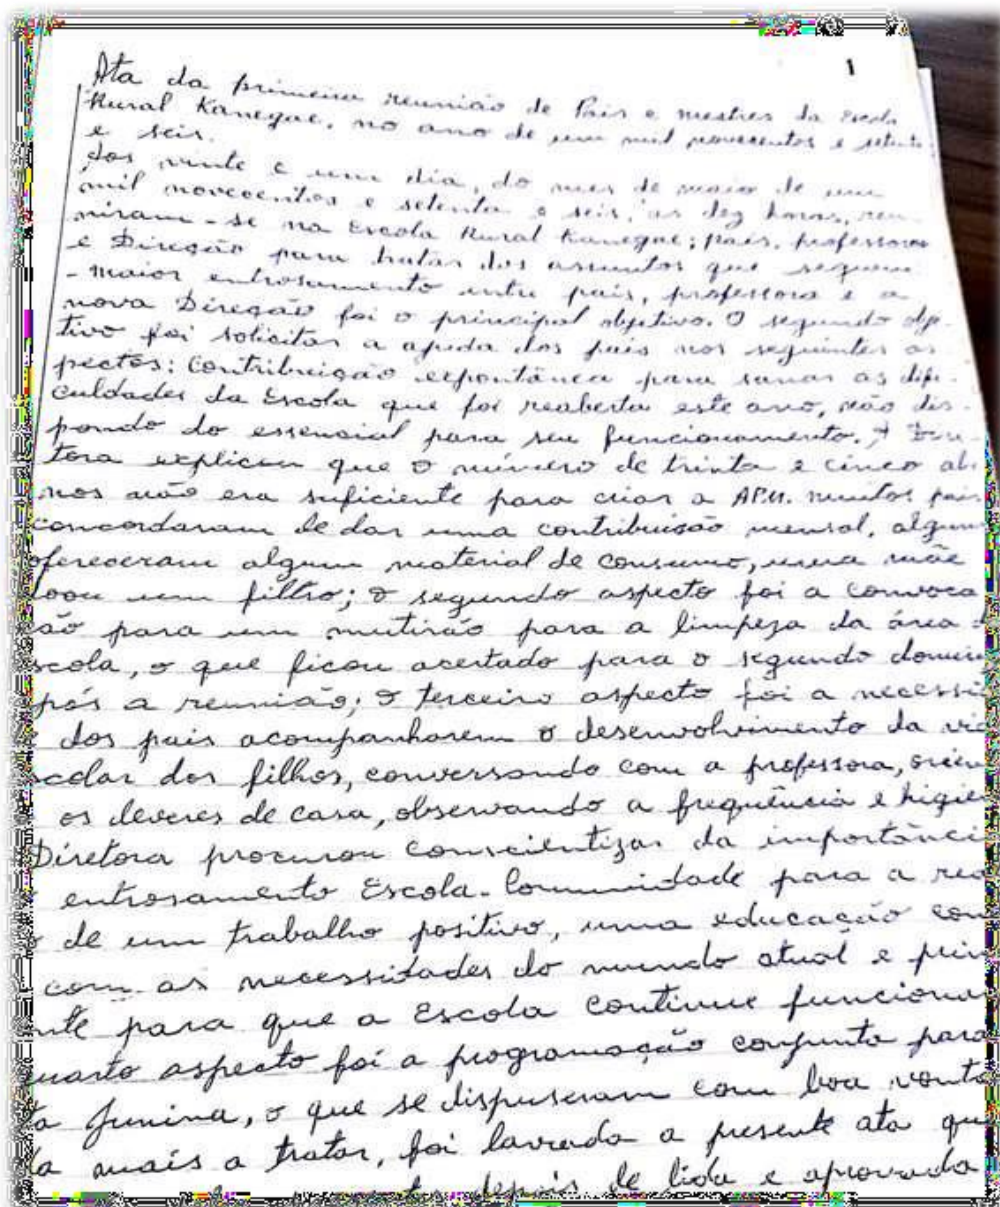 1
Ata da primeira reunião de Pais e mestres da Escola
Rural Kanegae, no ano de um mil novecentos e setenta
e seis.
Aos vinte e um dia, do mes de maio de um
mil novecentos e setenta e seis, as dez horas, reu
niram-se na Escola Rural Kanegae; pais, professores
e Direção para tratar dos assuntos que seguem:
- maior entrosamento entre pais, professora e a
nova Direção foi o principal objetivo. O segundo obje-
tivo foi solicitar a ajuda dos pais nos seguintes as
pectos: Contribuição expontânea para sanar as difi-
culdades da Escola que foi reaberta este ano, não dis-
pondo do essencial para seu funcionamento. A Dire-
tora explicou que o número de trinta e cinco alu
nos não era suficiente para criar a APM. muitos pais
concordaram de dar uma contribuisão mensal, algum
ofereceram algum material de consumo, uma mãe
doou um filtro; o segundo aspecto foi a convoca
ão para um mutirão para a limpeza da área d
scola, o que ficou acertado para o segundo domin
pós a reunião; o terceiro aspecto foi a necessi
dos pais acompanharem o desenvolvimento da vid
scolar dos filhos, conversando com a professora, orien
os deveres de casa, observando a frequência e higie
Diretora procurou conscientizar da importânci
entrosamento Escola-Comunidade para a rea
o de um trabalho positivo, uma educação con
com as necessidades do mundo atual e prin
nte para que a Escola continue funcionan
uarto aspecto foi a programação conjunta para
ta Junina, o que se dispuseram com boa vonta
da mais a tratar, foi lavrada a presente ata que
depois de lida e aprovada